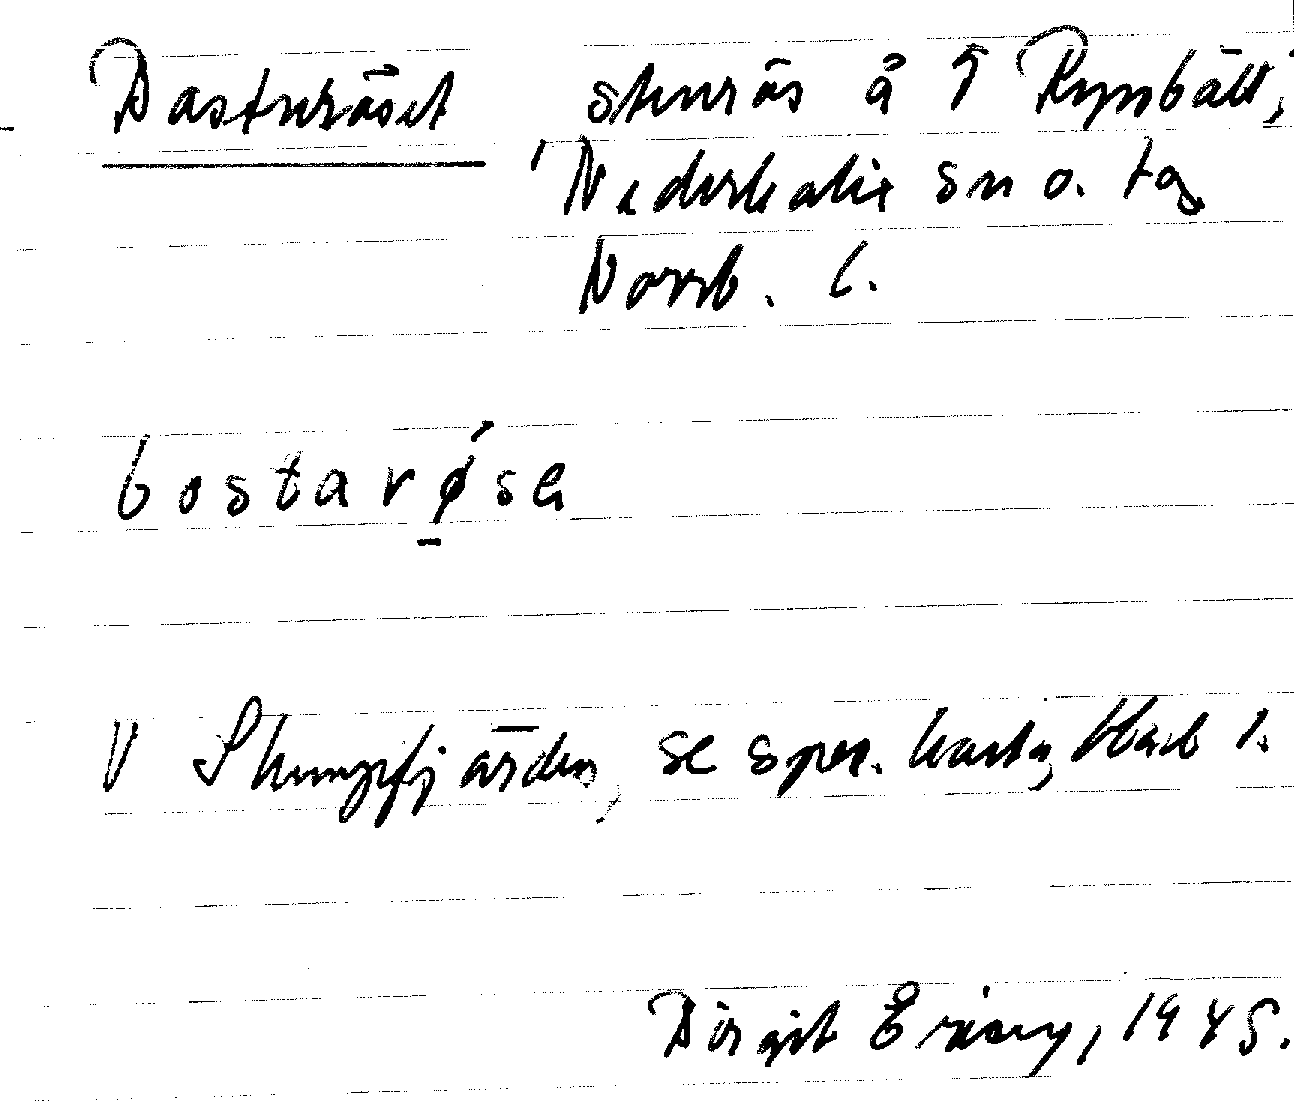 Basturöset stenrös å ↑ Rymbält,
Nederkalix sn o. tg
Norrb. l.
bostarøse
V Skumpfjärden, se spec. karta, blad 1.
Birgit Ericy, 1945.